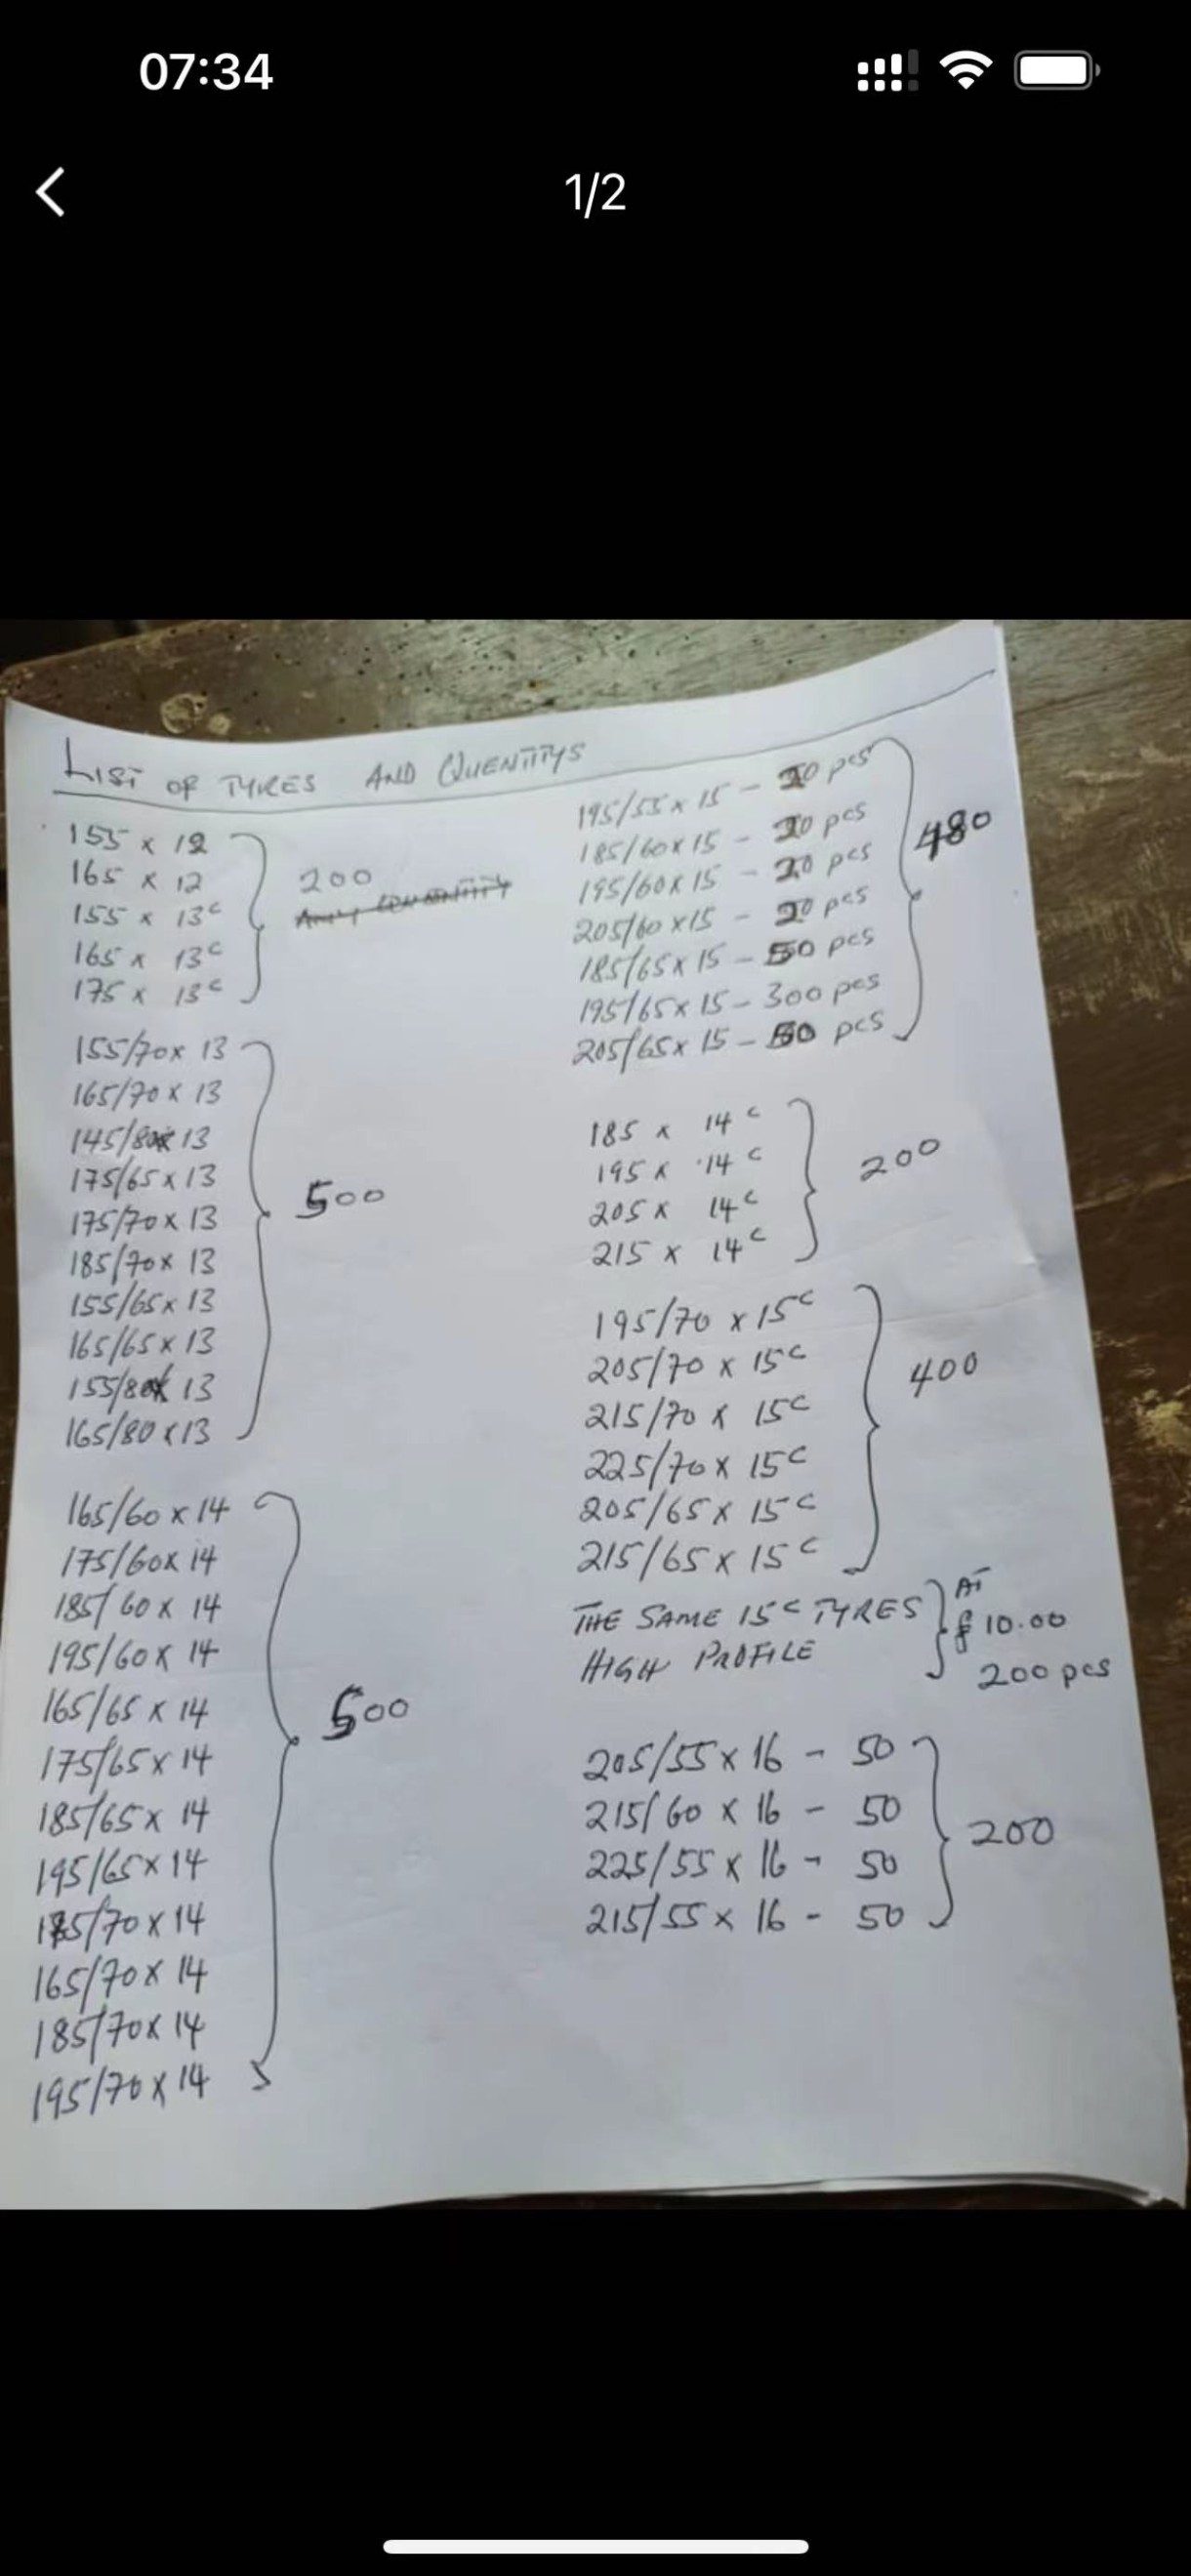 07:34
1/2
LIST OF TYRES AND QUENTITYS
155 x 12
165 x 12
155 x 13c
165 x 13c
175 x 13c
200
155/70x 13
165/70 x 13
145/80x 13
175/65 x 13
175/70 x 13
185/70x 13
155/65x 13
165/65 x 13
155/80x 13
165/80 x 13
500
165/60 x 14
175/60x 14
185/60 x 14
195/60x 14
165/65 x 14
175/65 x 14
185/65 x 14
195/65x 14
/70 x 14
165/70x 14
185/70x 14
195/70 x 14
500
195/55 x 15 - 20 pcs
185/60x 15 - 20 pcs
195/60x 15 - 20 pcs
205/60 x15 - 20 pcs
185/65x 15 - 50 pcs
195/65x 15 - 300 pcs
205/65x 15 - 50 pcs
480
185 x 14c
195 x 14c
205 x 14c
215 x 14c
200
195/70 x 15c
205/70 x 15c
215/70 x 15c
225/70 x 15c
205/65 x 15c
215/65 x 15c
400
THE SAME 15c TYRES
HIGH PROFILE
AT
£10.00
200 pcs
205/55 x 16 - 50
215/60 x 16 - 50
225/55 x 16 - 50
215/55 x 16 - 50
200